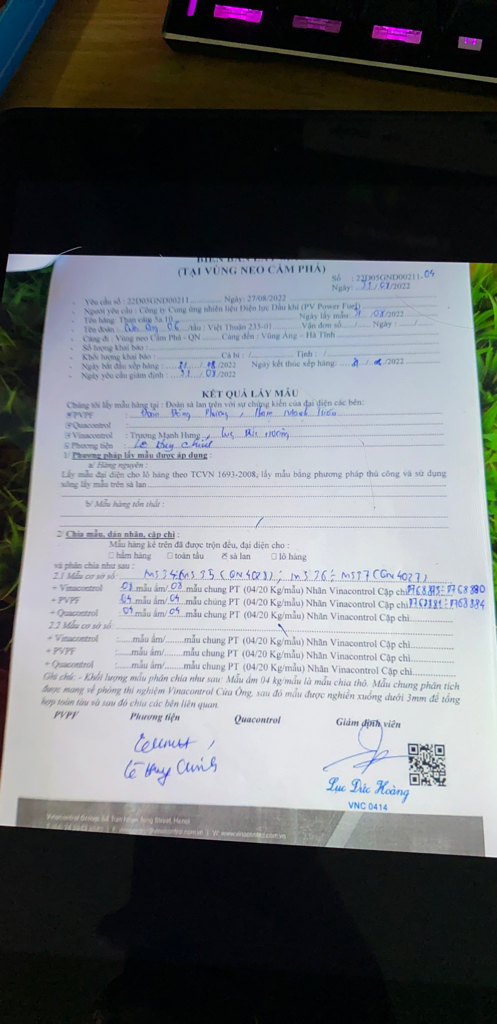 (TẠI VÙNG NEO CẨM PHẢ)
Số : 22D05GND00211.04
Ngày: 31/08/2022
- Yêu cầu số : 22D05GND00211 Ngày: 27/08/2022
- Người yêu cầu : Công ty Cung ứng nhiên liệu Điện lực Dầu khí (PV Power Fuel)
- Tên hàng: Than cám 5a.10 Ngày lấy mẫu: /08/2022
- Tên đoàn : 06 tàu : Việt Thuận 235-01 Vận đơn số Ngày :
- Cảng đi : Vùng neo Cẩm Phả - QN Cảng đến : Vũng Áng – Hà Tĩnh
- Số lượng khai báo :
- Khối lượng khai báo : Cả bì : / Tịnh : /
- Ngày bắt đầu xếp hàng : /08/2022 Ngày kết thúc xếp hàng: /2022
- Ngày yêu cầu giám định : 31/08/2022
KẾT QUẢ LẤY MẪU
Chúng tôi lấy mẫu hàng tại : Đoàn sà lan trên với sự chứng kiến của đại diện các bên:
PVPF : Đoàn Đông Phương,
Quacontrol :
Vinacontrol : Trương Mạnh Hưng, Lục Đức Hoàng
Phương tiện : Lê Huy Chinh
1/ Phương pháp lấy mẫu được áp dụng :
a/ Hàng nguyên :
Lấy mẫu đại diện cho lô hàng theo TCVN 1693-2008, lấy mẫu bằng phương pháp thủ công và sử dụng xẻng lấy mẫu trên sà lan
b/ Mẫu hàng tổn thất :
2/ Chia mẫu, dán nhãn, cặp chì :
Mẫu hàng kể trên đã được trộn đều, đại diện cho :
hầm hàng toàn tàu sà lan lô hàng
và phân chia như sau :
2.1 Mẫu cơ sở số: MS74÷MS75 (GN4028); MS76÷MS77 (GN4027)
+ Vinacontrol 08 mẫu ẩm/08 mẫu chung PT (04/20 Kg/mẫu) Nhãn Vinacontrol Cặp chì
+ PVPF 04 mẫu ẩm/04 mẫu chung PT (04/20 Kg/mẫu) Nhãn Vinacontrol Cặp chì
+ Quacontrol 04 mẫu ẩm/04 mẫu chung PT (04/20 Kg/mẫu) Nhãn Vinacontrol Cặp chì
2.2 Mẫu cơ sở số:
+ Vinacontrol :......mẫu ẩm/......mẫu chung PT (04/20 Kg/mẫu) Nhãn Vinacontrol Cặp chì
+ PVPF :......mẫu ẩm/......mẫu chung PT (04/20 Kg/mẫu) Nhãn Vinacontrol Cặp chì
+ Quacontrol :......mẫu ẩm/......mẫu chung PT (04/20 Kg/mẫu) Nhãn Vinacontrol Cặp chì
Ghi chú: - Khối lượng mẫu phân chia như sau: Mẫu ẩm 04 kg/mẫu là mẫu chia thô. Mẫu chung phân tích
được mang về phòng thí nghiệm Vinacontrol Cửa Ông, sau đó mẫu được nghiền xuống dưới 3mm để tổng
hợp toàn tàu và sau đó chia các bên liên quan.
PVPF Phương tiện Quacontrol Giám định viên
Lê Huy Chinh
Lục Đức Hoàng
VNC 0414